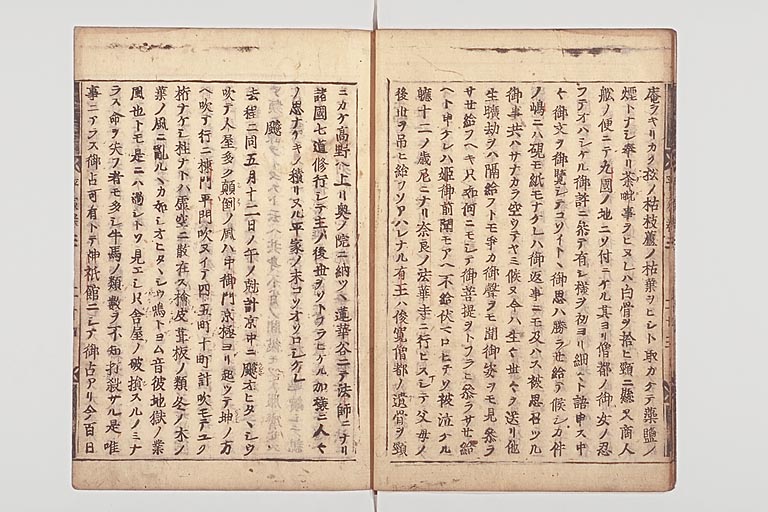 庵ヲキリカケ松ノ枯枝蘆ノ枯葉ヲヒシト取カケテ藻鹽ノ
煙トナシ奉リ荼毗事ヲヒヌレハ白骨ヲ拾ヒ頸ニ懸又商人
舩ノ便ニテ九國ノ地ニソ付ニケル其ヨリ僧都ノ御女ノ忍
フテオハシケル御許ニ参テ有シ様ヲ初ヨリ細々ト語申ス中
々御文ヲ御覧シテコソイトヽ御思ハ勝ラ世給テ候シカ件
ノ嶋ニハ硯モ紙モナケレハ御返事ニモ及ハス被思召ツル
御事共ハサナカラ空ウテヤミ候又今ハ生々世々ヲ送リ他
生曠劫ヲハ隔給フトモ争カ御聲ヲモ聞御姿ヲモ見参ラ
サ世給フヘキ只如何ニモシテ御菩提ヲトフラヒ参ラサ世給
ヘト申ケレハ姫御前聞モアヘ不給伏マロヒテソ被泣ケル
軈十二ノ歳尼ニナリ奈良ノ法華寺ニ行ヒスマシテ父母ノ
後世ヲ吊ヒ給フソアハレナル有王ハ俊寛僧都ノ遺骨ヲ頸
ニカケ高野ヘ上リ奥ノ院ニ納ツヽ蓮華谷ニテ法師ニナリ
諸國七道修行シテ主ノ後世ヲソトフラヒケル加様ニ人々
ノ思ナケキノ積リヌル平家ノ末コソオソロシケレ
飈
去程ニ同五月十二日ノ午ノ尅計京中ニ飈オヒタヽシウ
吹テ人屋多ク顛倒ノ風ハ中御門京極ヨリ起ツテ坤ノ方
ヘ吹テ行ニ棟門平門吹ヌイテ四五町十町計吹モテユク
桁ナケシ柱ナトハ虚空ニ散在ス檜皮葺板ノ類冬ノ木ノ
葉ノ風ニ亂ルヽカ如シオヒタヽシウ鳴トヨム音彼地獄ノ業
風也トモ是ニハ過シトソ見エシ只舎屋ノ破損スルノミナ
ラス命ヲ失フ者モ多シ牛馬ノ類數ヲ不知打殺サル是唯
事ニアラス御占可有トテ神祇館ニシテ御占アリ今百日